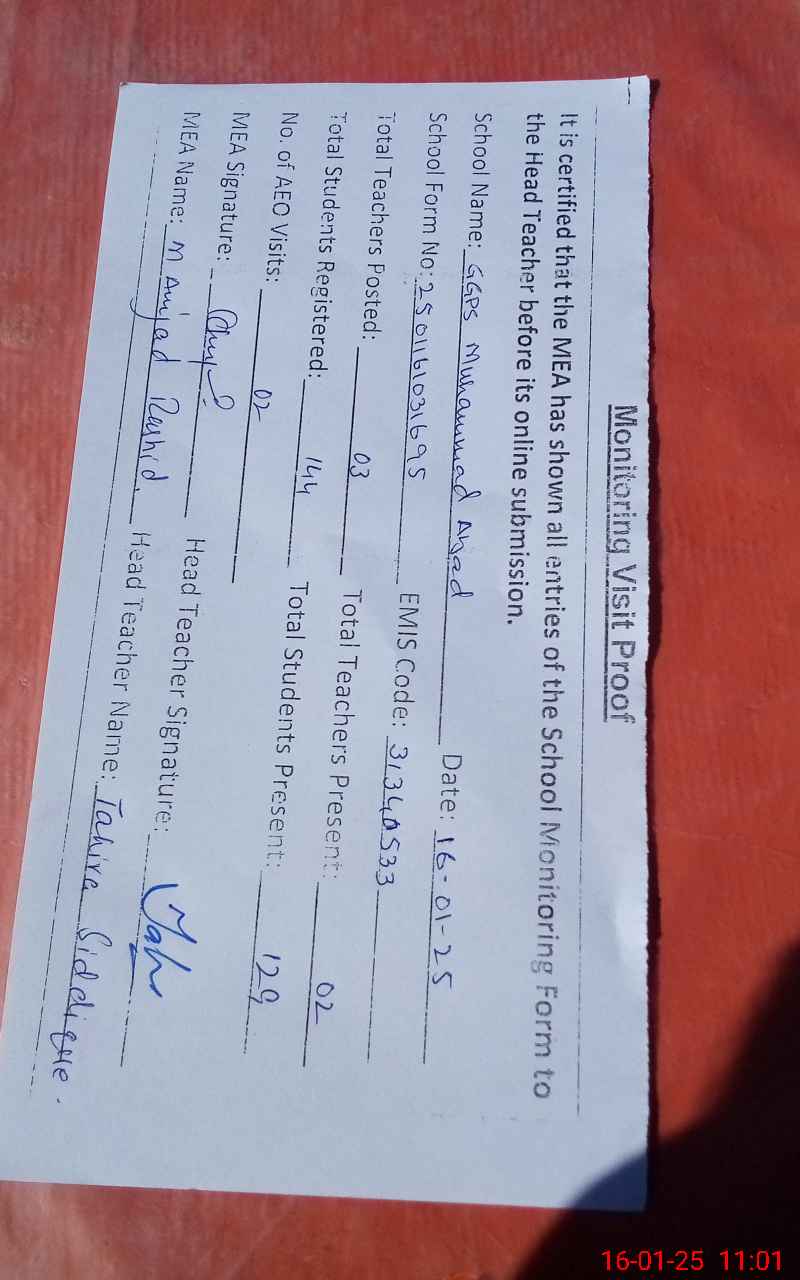 Monitoring Visit Proof
It is certified that the MEA has shown all entries of the School Monitoring Form to
the Head Teacher before its online submission.
School Name: GGPS Muhammad Amjad Date: 16-01-25
School Form No: 2501161031695 EMIS Code: 31340533
Total Teachers Posted: 03 Total Teachers Present: 02
Total Students Registered: 144 Total Students Present: 129
No. of AEO Visits: 02
MEA Signature: Head Teacher Signature:
MEA Name: M Amjad Rashid. Head Teacher Name: Tahira Siddique.
16-01-25 11:01